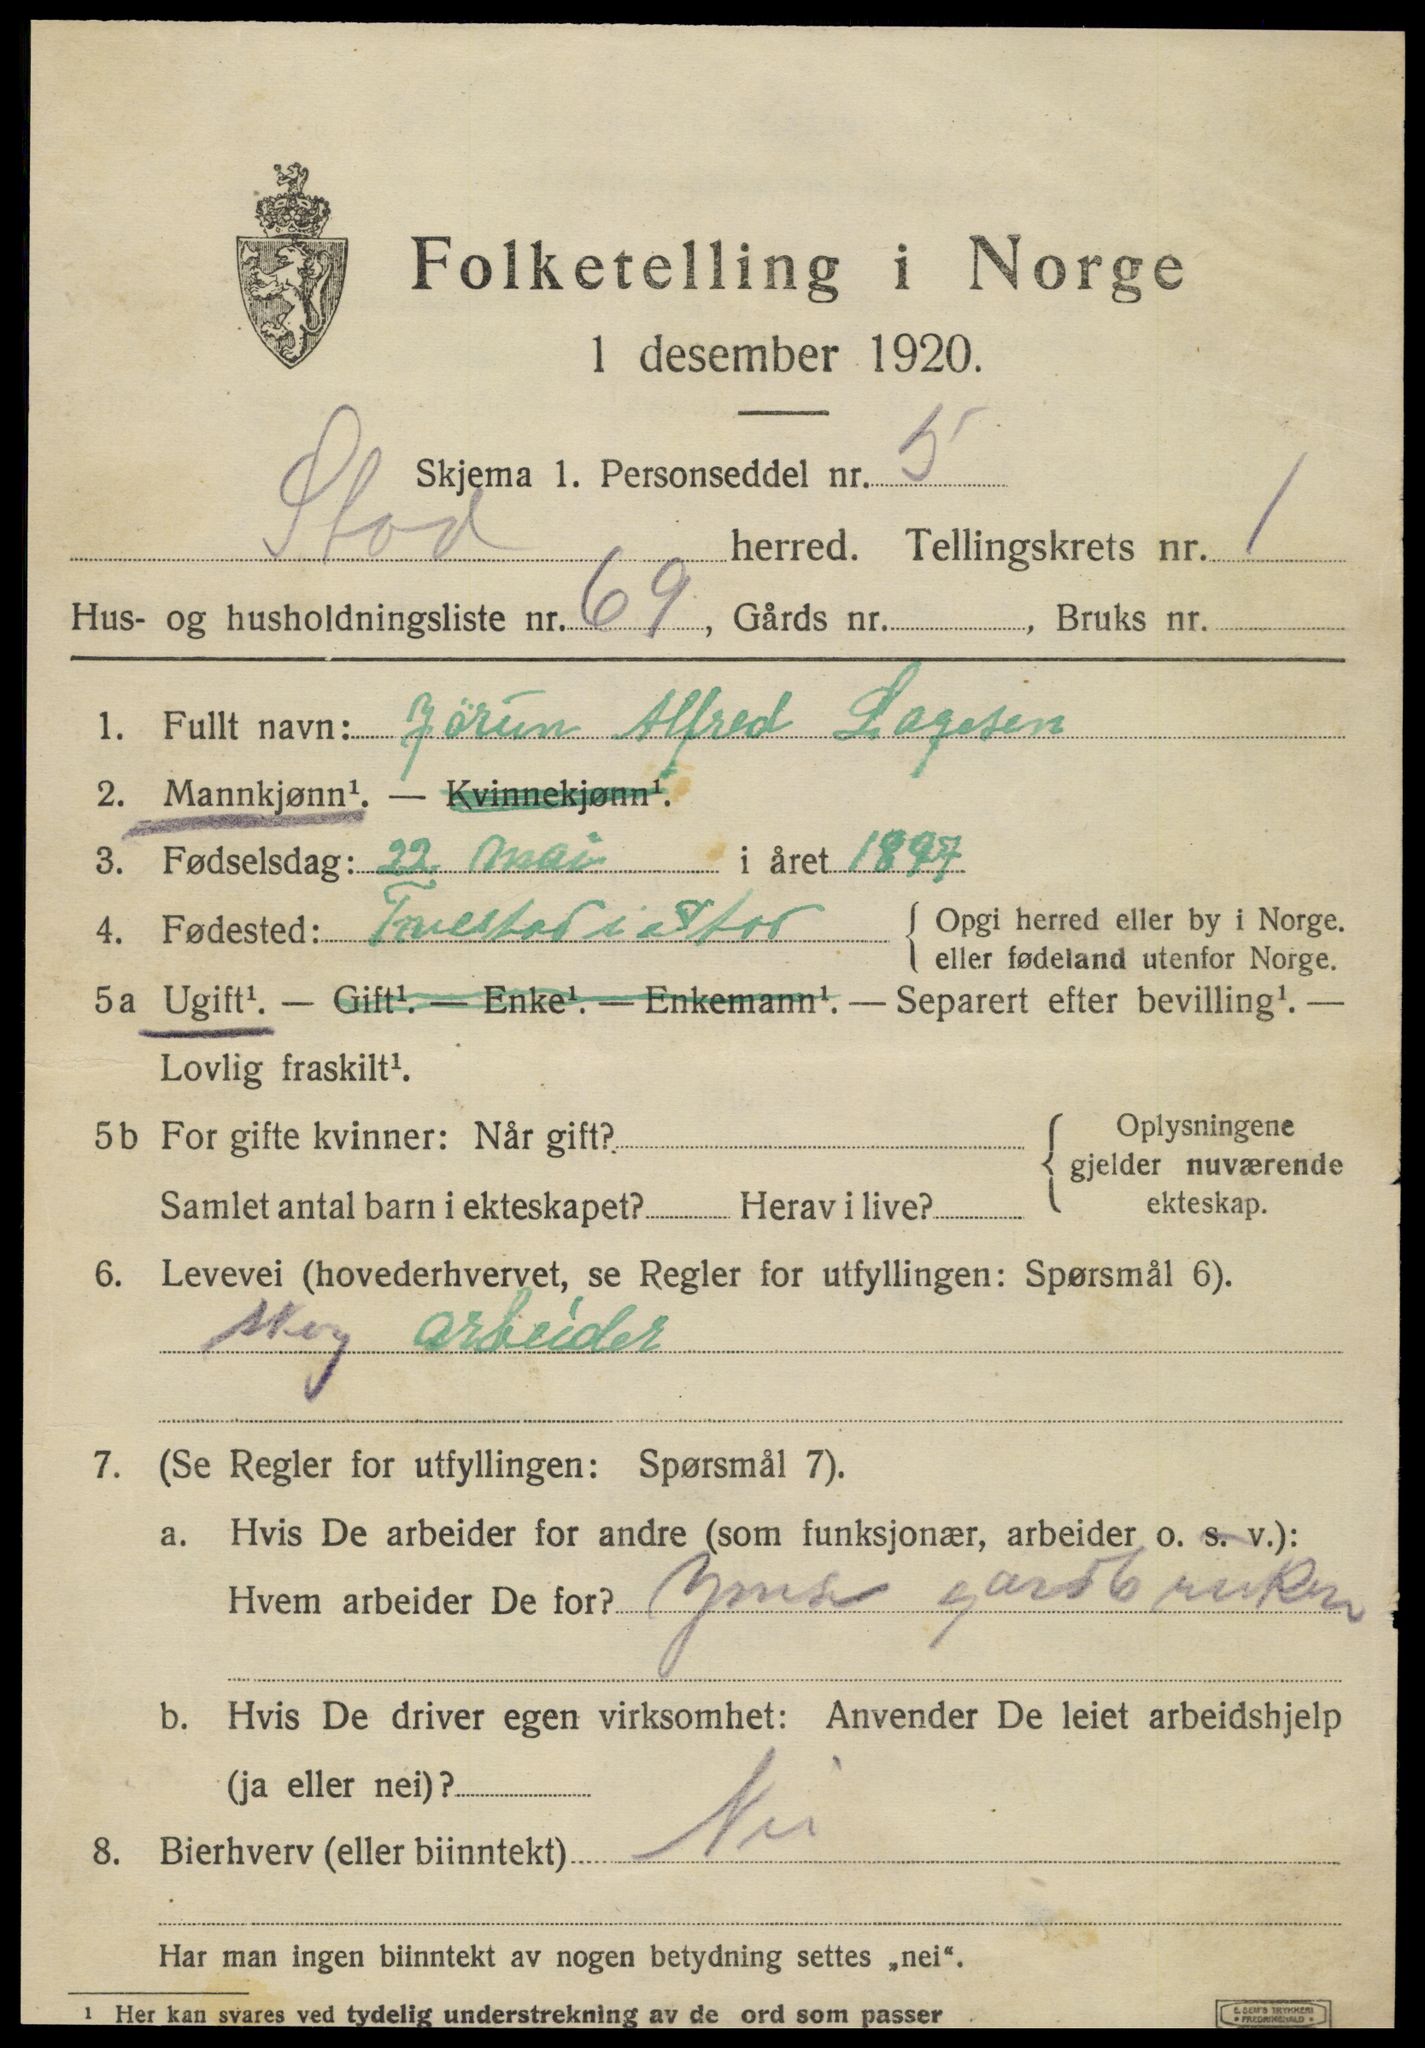 Folketelling i Norge
1 desember 1920.
Skjema 1. Personseddel nr. 5
Stod herred. Tellingskrets nr. 1
Hus- og husholdningsliste nr. 69, Gårds nr. , Bruks nr.
1. Fullt navn: Jørun Alfred Lagesen
2. Mannkjønn¹. — Kvinnekjønn¹.
3. Fødselsdag: 22 mai i året 1897
4. Fødested: i Stod { Opgi herred eller by i Norge.
eller fødeland utenfor Norge.
5a Ugift¹. — Gift¹. — Enke¹. — Enkemann¹. — Separert efter bevilling¹. —
Lovlig fraskilt¹.
5b For gifte kvinner: Når gift? { Oplysningene
gjelder nuværende
Samlet antal barn i ekteskapet? Herav i live? ekteskap.
6. Levevei (hovederhvervet, se Regler for utfyllingen: Spørsmål 6).
skog arbeider
7. (Se Regler for utfyllingen: Spørsmål 7).
a. Hvis De arbeider for andre (som funksjonær, arbeider o. s. v.):
Hvem arbeider De for? Ymse gardbruker
b. Hvis De driver egen virksomhet: Anvender De leiet arbeidshjelp
(ja eller nei)?
8. Bierhverv (eller biinntekt) Nei
Har man ingen biinntekt av nogen betydning settes „nei“.
¹ Her kan svares ved tydelig understrekning av de ord som passer
E. SEM'S TRYKKERI
* FREDRIKSHALD *